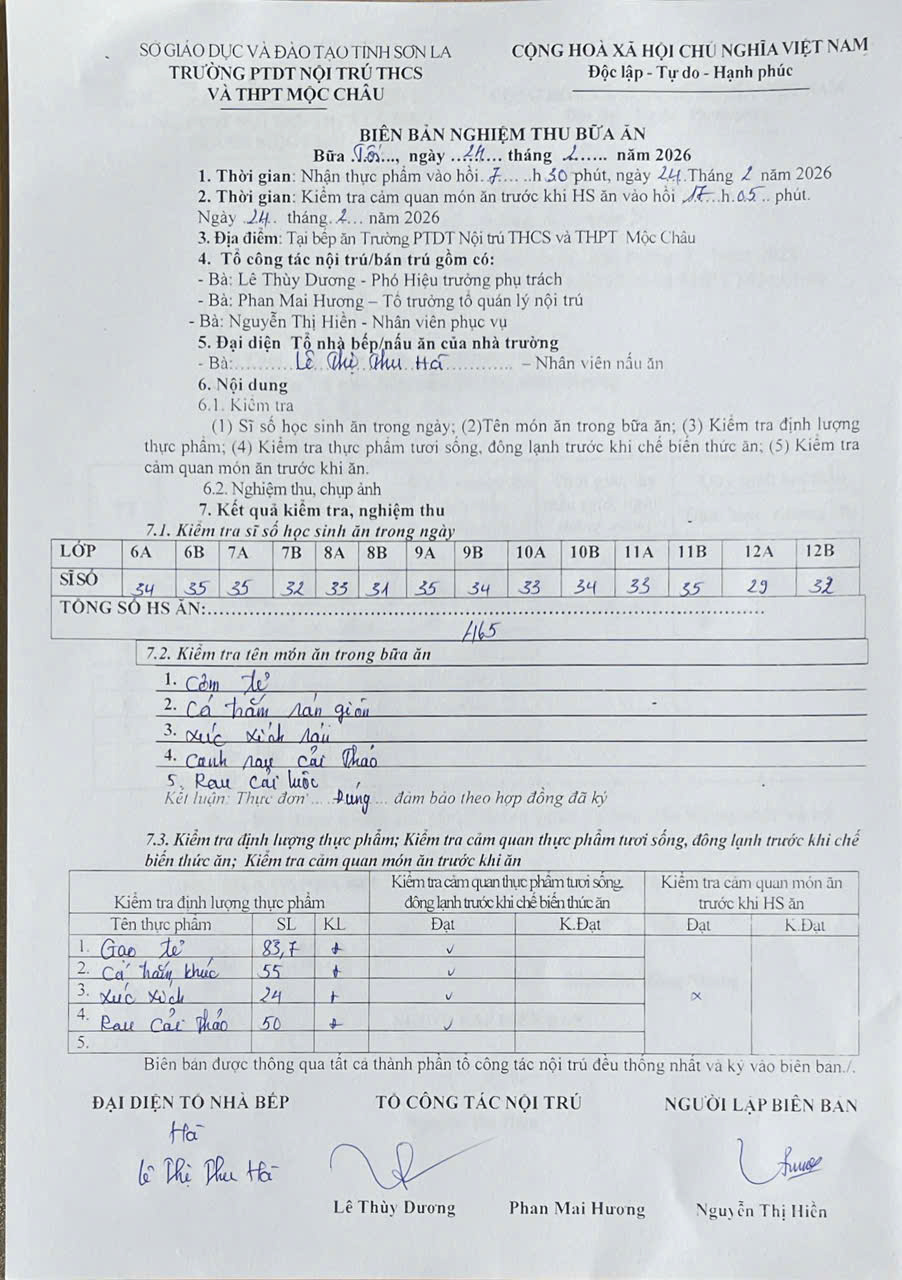 SỞ GIÁO DỤC VÀ ĐÀO TẠO TỈNH SƠN LA
TRƯỜNG PTDT NỘI TRÚ THCS
VÀ THPT MỘC CHÂU
CỘNG HOÀ XÃ HỘI CHỦ NGHĨA VIỆT NAM
Độc lập - Tự do - Hạnh phúc
BIÊN BẢN NGHIỆM THU BỮA ĂN
Bữa Tối..., ngày ..24... tháng ..2...... năm 2026
1. Thời gian: Nhận thực phẩm vào hồi.7.....h 30 phút, ngày 24.Tháng 2 năm 2026
2. Thời gian: Kiểm tra cảm quan món ăn trước khi HS ăn vào hồi .17...h.05.. phút.
Ngày .24.. tháng.2... năm 2026
3. Địa điểm: Tại bếp ăn Trường PTDT Nội trú THCS và THPT Mộc Châu
4. Tổ công tác nội trú/bán trú gồm có:
- Bà: Lê Thùy Dương - Phó Hiệu trưởng phụ trách
- Bà: Phan Mai Hương – Tổ trưởng tổ quản lý nội trú
- Bà: Nguyễn Thị Hiền - Nhân viên phục vụ
5. Đại diện Tổ nhà bếp/nấu ăn của nhà trường
- Bà:...........Lê Thị Thu Hà............. – Nhân viên nấu ăn
6. Nội dung
6.1. Kiểm tra
(1) Sĩ số học sinh ăn trong ngày; (2)Tên món ăn trong bữa ăn; (3) Kiểm tra định lượng
thực phẩm; (4) Kiểm tra thực phẩm tươi sống, đông lạnh trước khi chế biến thức ăn; (5) Kiểm tra
cảm quan món ăn trước khi ăn.
6.2. Nghiệm thu, chụp ảnh
7. Kết quả kiểm tra, nghiệm thu
7.1. Kiểm tra sĩ số học sinh ăn trong ngày
LỚP 6A 6B 7A 7B 8A 8B 9A 9B 10A 10B 11A 11B 12A 12B
SĨ SỐ 34 35 35 32 33 31 35 34 33 34 33 35 29 32
TỔNG SỐ HS ĂN:......................................................................
465
7.2. Kiểm tra tên món ăn trong bữa ăn
1. Cơm tẻ
2. Cá trắm rán giòn
3. Xúc xích rán
4. Canh rau cải thảo
5. Rau cải luộc
Kết luận: Thực đơn ....Đúng.... đảm bảo theo hợp đồng đã ký
7.3. Kiểm tra định lượng thực phẩm; Kiểm tra cảm quan thực phẩm tươi sống, đông lạnh trước khi chế
biến thức ăn; Kiểm tra cảm quan món ăn trước khi ăn
Kiểm tra định lượng thực phẩm
Kiểm tra cảm quan thực phẩm tươi sống,
đông lạnh trước khi chế biến thức ăn
Kiểm tra cảm quan món ăn
trước khi HS ăn
Tên thực phẩm SL KL Đạt K.Đạt Đạt K.Đạt
1. Gạo tẻ 83,7 + ✓
2. Cá trắm khúc 55 + ✓
3. Xúc xích 24 + ✓ x
4. Rau cải thảo 50 + ✓
5.
Biên bản được thông qua tất cả thành phần tổ công tác nội trú đều thống nhất và ký vào biên bản./.
ĐẠI DIỆN TỔ NHÀ BẾP
TỔ CÔNG TÁC NỘI TRÚ
NGƯỜI LẬP BIÊN BẢN
Hà
Lê Thị Thu Hà
Lê Thùy Dương
Phan Mai Hương
Nguyễn Thị Hiền